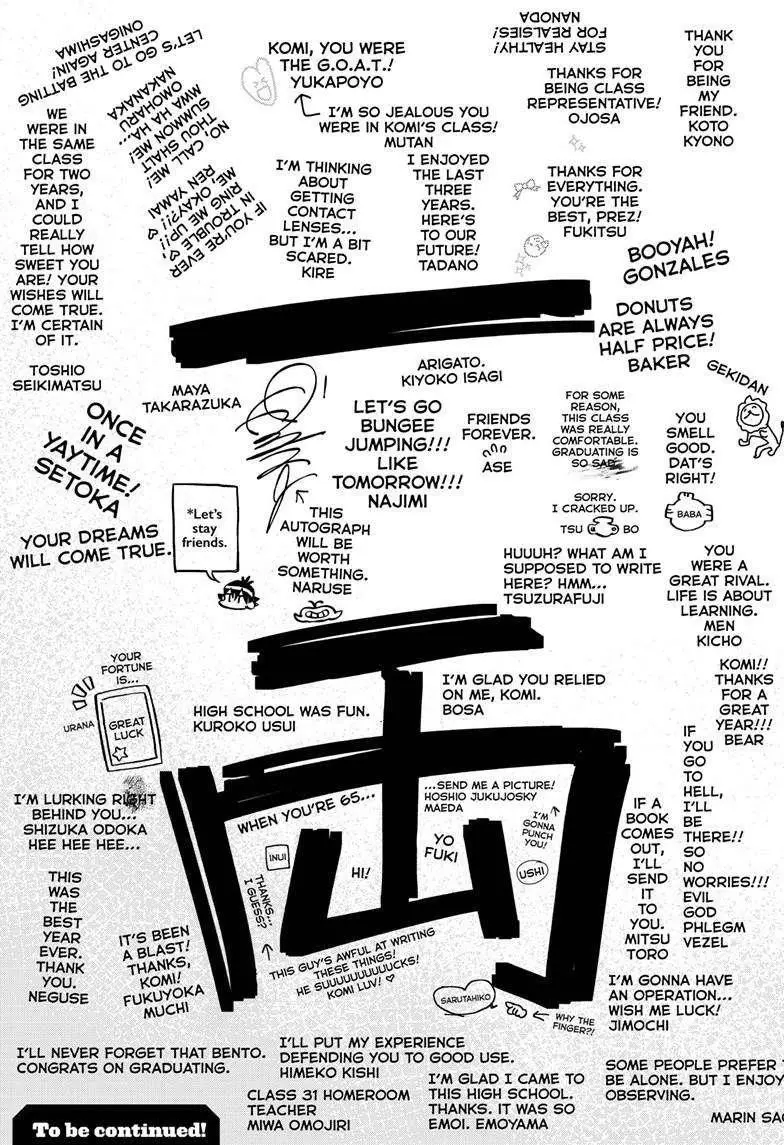 LET'S GO TO THE BATTING
CENTER AGAIN!
ONIGASHIMA
NO, CALL ME!
THOU SHALT
SUMMON ME!
MWA HA HA...
OMOHARU
NAKANAKA
KOMI, YOU WERE
THE G.O.A.T.!
YUKAPOYO
I'M SO JEALOUS YOU
WERE IN KOMI'S CLASS!
MUTAN
STAY HEALTHY!
FOR REALSIES!
NANODA
THANKS FOR
BEING CLASS
REPRESENTATIVE!
OJOSA
THANK
YOU
FOR
BEING
MY
FRIEND.
KOTO
KYONO
WE
WERE IN
THE SAME
CLASS
FOR TWO
YEARS,
AND I
COULD
REALLY
TELL HOW
SWEET YOU
ARE! YOUR
WISHES WILL
COME TRUE.
I'M CERTAIN
OF IT.
TOSHIO
SEIKIMATSU
IF YOU'RE EVER
IN TROUBLE,
RING ME UP!!
ME, OKAY?!!
REN YAMAI
I'M THINKING
ABOUT
GETTING
CONTACT
LENSES...
BUT I'M A BIT
SCARED.
KIRE
I ENJOYED
THE LAST
THREE
YEARS.
HERE'S
TO OUR
FUTURE!
TADANO
THANKS FOR
EVERYTHING.
YOU'RE THE
BEST, PREZ!
FUKITSU
BOOYAH!
GONZALES
DONUTS
ARE ALWAYS
HALF PRICE!
BAKER
MAYA
TAKARAZUKA
ARIGATO.
KIYOKO ISAGI
GEKIDAN
ONCE
IN A
YAYTIME!
SETOKA
!
LET'S GO
BUNGEE
JUMPING!!!
LIKE
TOMORROW!!!
NAJIMI
FRIENDS
FOREVER.
ASE
FOR SOME
REASON,
THIS CLASS
WAS REALLY
COMFORTABLE.
GRADUATING IS
SO SAD.
YOU
SMELL
GOOD.
DAT'S
RIGHT!
BABA
YOUR DREAMS
WILL COME TRUE.
*Let's
stay
friends.
THIS
AUTOGRAPH
WILL BE
WORTH
SOMETHING.
NARUSE
SORRY.
I CRACKED UP.
TSU BO
HUUUH? WHAT AM I
SUPPOSED TO WRITE
HERE? HMM...
TSUZURAFUJI
YOU
WERE A
GREAT RIVAL.
LIFE IS ABOUT
LEARNING.
MEN
KICHO
YOUR
FORTUNE
IS...
URANA
GREAT
LUCK
HIGH SCHOOL WAS FUN.
KUROKO USUI
I'M GLAD YOU RELIED
ON ME, KOMI.
BOSA
KOMI!!
THANKS
FOR A
GREAT
YEAR!!!
BEAR
IF
YOU
GO
TO
HELL,
I'LL
BE
THERE!!
SO
NO
WORRIES!!!
EVIL
GOD
PHLEGM
VEZEL
I'M LURKING RIGHT
BEHIND YOU...
SHIZUKA ODOKA
HEE HEE HEE...
WHEN YOU'RE 65...
...SEND ME A PICTURE!
HOSHIO JUKUJOSKY
MAEDA
I'M
GONNA
PUNCH
YOU!
USHI
IF A
BOOK
COMES
OUT,
I'LL
SEND
IT
TO
YOU.
MITSU
TORO
INUI
HI!
YO
FUKI
THANKS...
I GUESS?
THIS GUY'S AWFUL AT WRITING
THESE THINGS!
HE SUUUUUUUUUCKS!
KOMI LUV! ♡
THIS
WAS
THE
BEST
YEAR
EVER.
THANK
YOU.
NEGUSE
IT'S BEEN
A BLAST!
THANKS,
KOMI!
FUKUYOKA
MUCHI
SARUTAHIKO
WHY THE
FINGER?!
I'M GONNA HAVE
AN OPERATION...
WISH ME LUCK!
JIMOCHI
I'LL NEVER FORGET THAT BENTO.
CONGRATS ON GRADUATING.
I'LL PUT MY EXPERIENCE
DEFENDING YOU TO GOOD USE.
HIMEKO KISHI
CLASS 31 HOMEROOM
TEACHER
MIWA OMOJIRI
I'M GLAD I CAME TO
THIS HIGH SCHOOL.
THANKS. IT WAS SO
EMOI. EMOYAMA
SOME PEOPLE PREFER
BE ALONE. BUT I ENJOY
OBSERVING.
MARIN
To be continued!